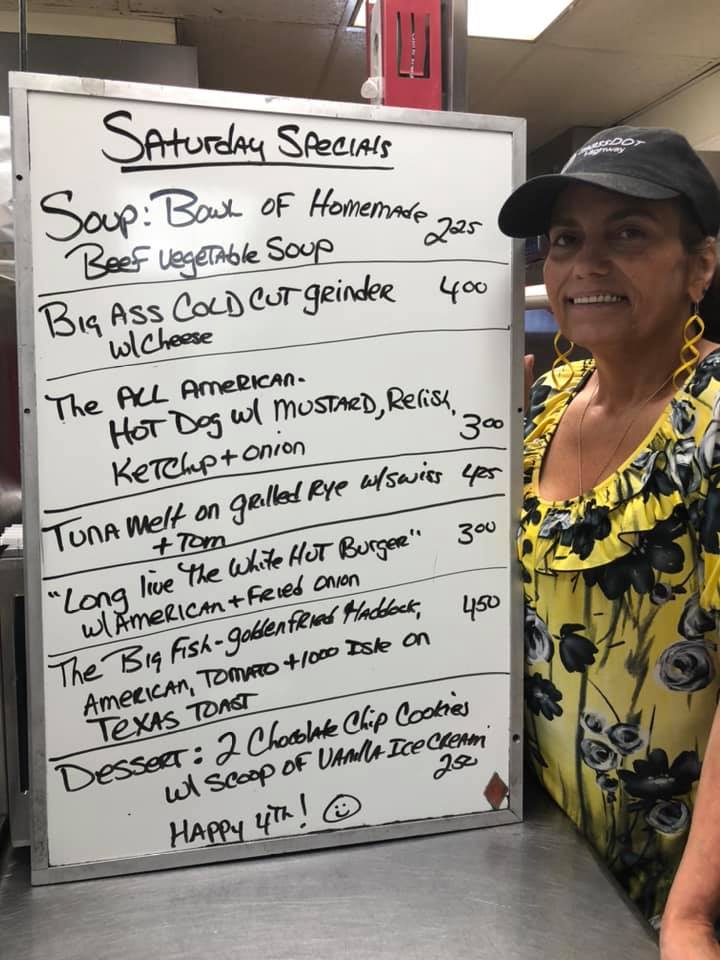 Saturday Specials
Soup: Bowl of Homemade 2.25
Beef Vegetable Soup
Big Ass Cold Cut grinder 4.00
w/Cheese
The All American-
Hot Dog w/ Mustard, Relish,
Ketchup + onion 3.00
Tuna Melt on grilled Rye w/swiss 4.25
+ Tom
"Long live The White Hut Burger" 3.00
w/American + Fried onion
The Big Fish-golden fried Haddock, 4.50
American, Tomato + 1000 Isle on
Texas Toast
Dessert: 2 Chocolate Chip Cookies
w/ scoop of Vanilla Ice Cream 2.50
Happy 4th!
massDOT
Highway